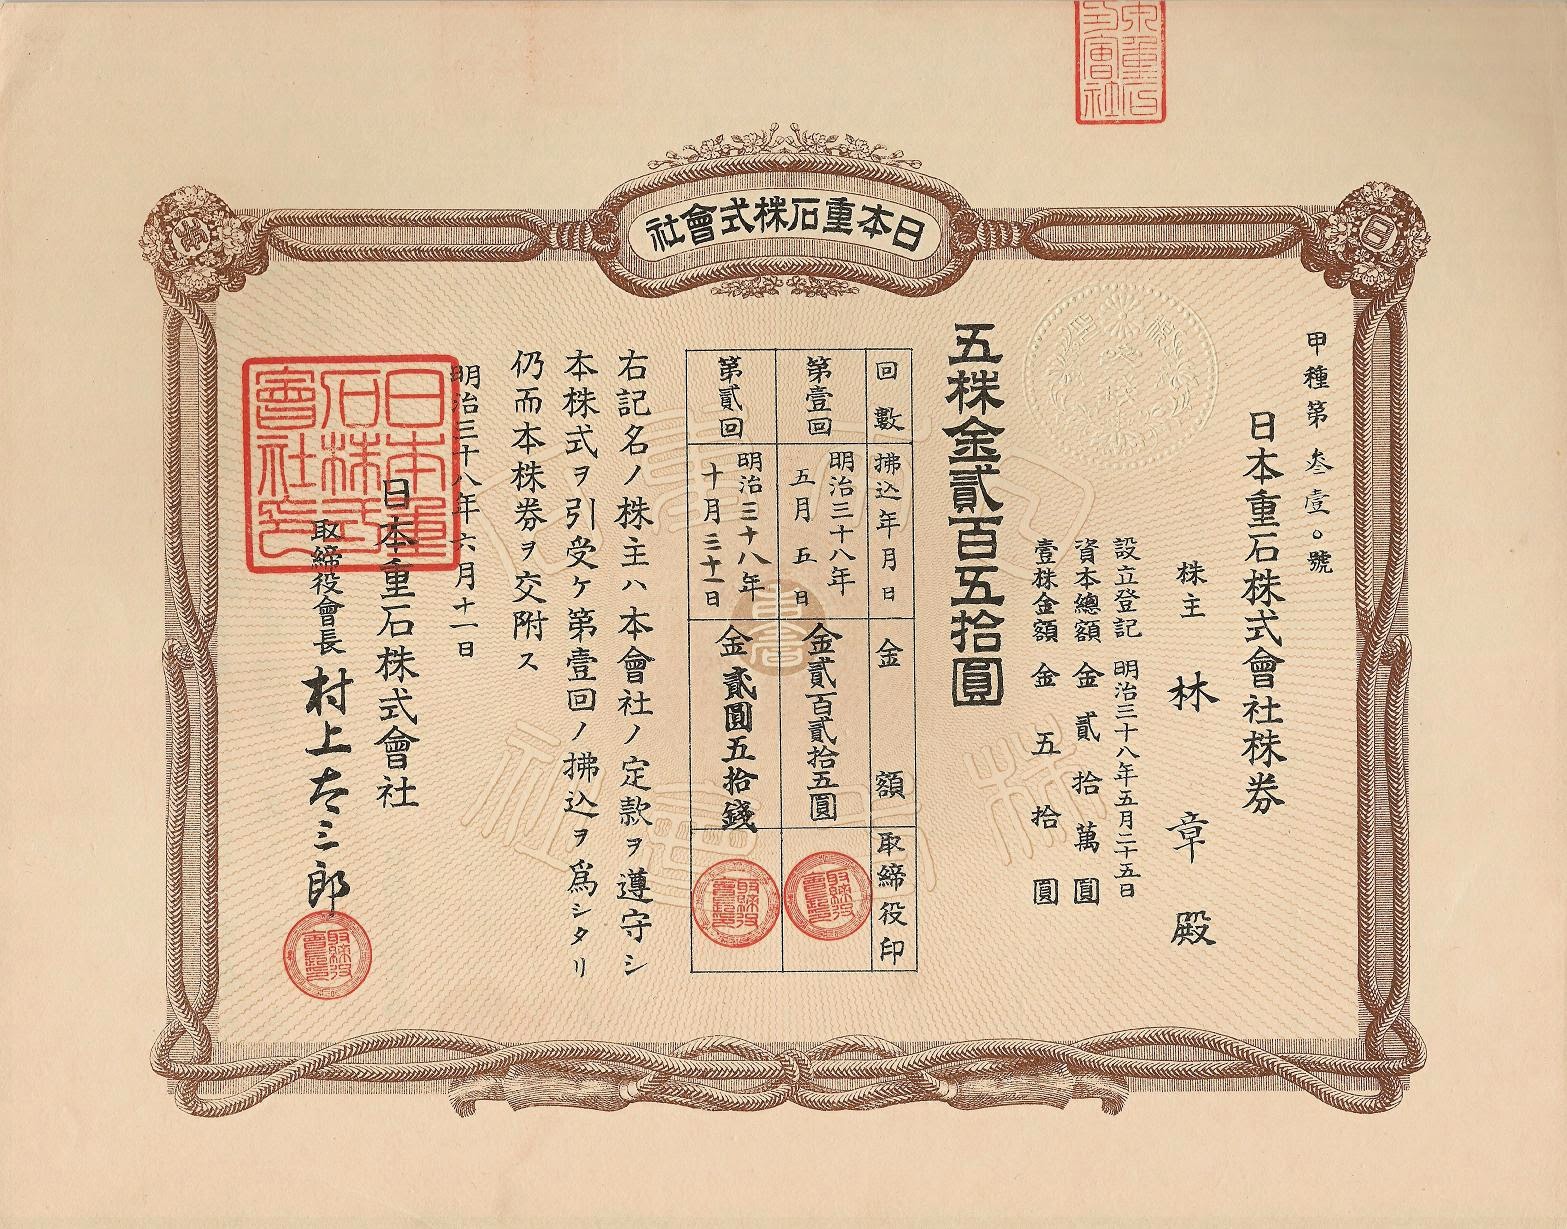 日本重石株式會社
甲種第叁壹〇號
日本重石株式會社株券
株主 林章殿
設立登記 明治三十八年五月二十五日
資本總額 金貳拾萬圓
壹株金額 金五拾圓
五株金貳百五拾圓
回數 拂込年月日 金額 取締役印
第壹回 明治三十八年五月五日 金貳百貳拾五圓
第貳回 明治三十八年十月三十一日 金貳圓五拾錢
右記名ノ株主ハ本會社ノ定款ヲ遵守シ
本株式ヲ引受ケ第壹回ノ拂込ヲ爲シタリ
仍而本株券ヲ交附ス
明治三十八年六月十一日
日本重石株式會社
取締役會長 村上太三郎
日本重石株式會社印